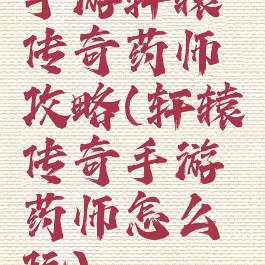 手游轩辕
传奇药师
攻略(轩辕
传奇手游
药师怎么
玩)